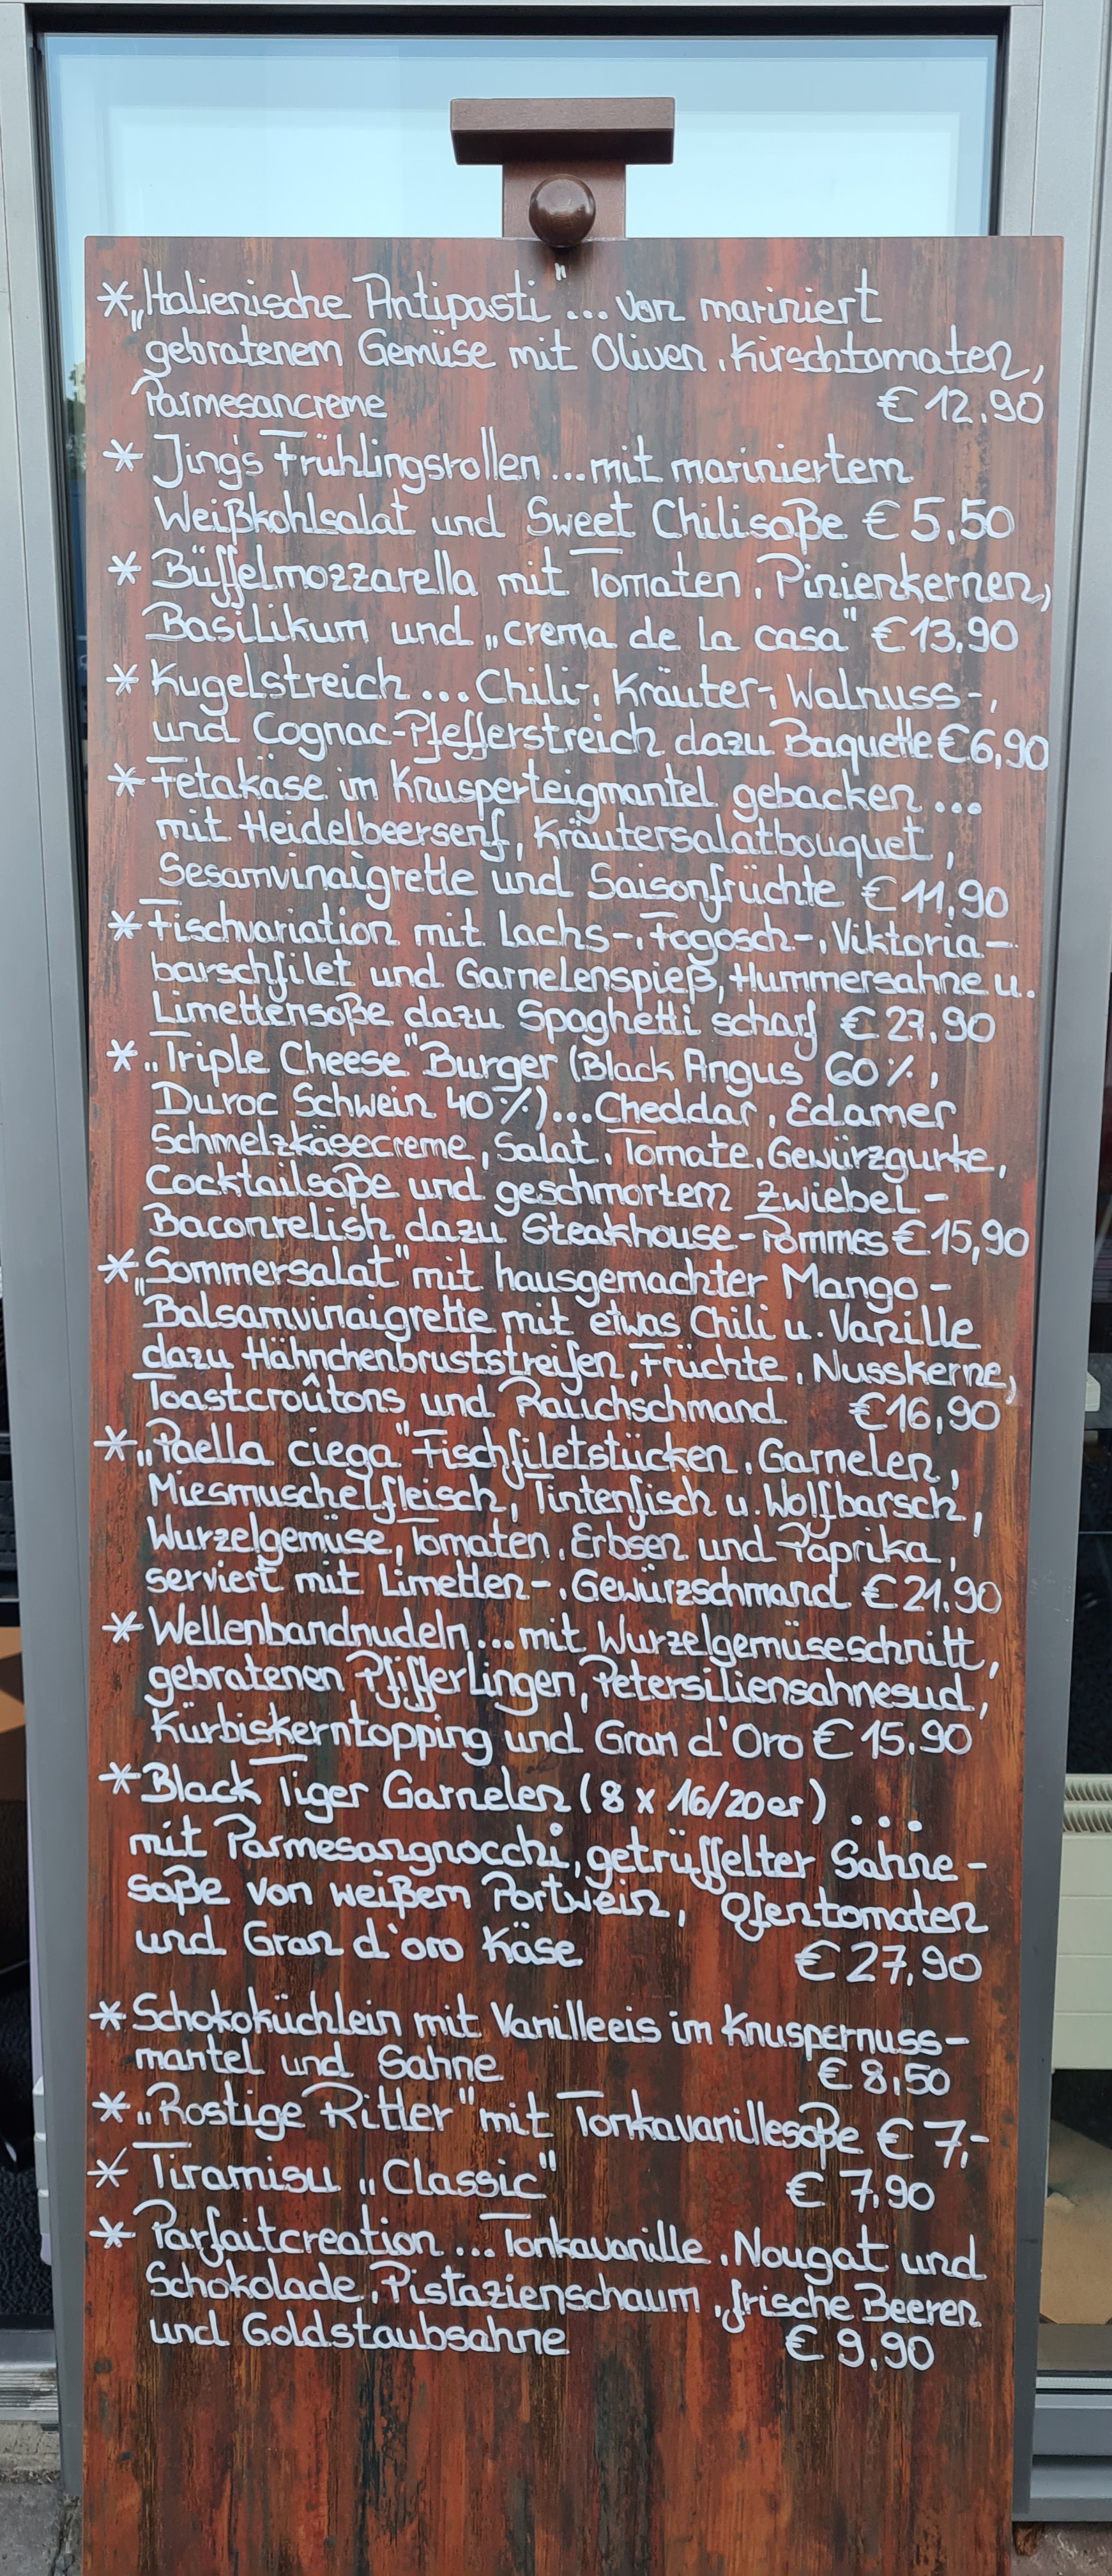 * „Italienische Antipasti" ... von mariniert
gebratenem Gemüse mit Oliven, Kirschtomaten,
Parmesancreme € 12,90
* Jing's Frühlingsrollen ... mit mariniertem
Weißkohlsalat und Sweet Chilisoße € 5,50
* Büffelmozzarella mit Tomaten, Pinienkernen,
Basilikum und „crema de la casa" € 13,90
* Kugelstreich ... Chili-, Kräuter-, Walnuss-,
und Cognac-Pfefferstreich dazu Baquette € 6,90
* Fetakäse im Knusperteigmantel gebacken ...
mit Heidelbeersenf, Kräutersalatbouquet,
Sesamvinaigrette und Saisonfrüchte € 11,90
* Fischvariation mit Lachs-, Fogosch-, Viktoria-
barschfilet und Garnelenspieß, Hummersahne u.
Limettensoße dazu Spaghetti scharf € 27,90
* „Triple Cheese" Burger (Black Angus 60%,
Duroc Schwein 40%) ... Cheddar, Edamer
Schmelzkäsecreme, Salat, Tomate, Gewürzgurke,
Cocktailsoße und geschmortem Zwiebel-
Baconrelish dazu Steakhouse-Pommes € 15,90
* „Sommersalat" mit hausgemachter Mango-
Balsamvinaigrette mit etwas Chili u. Vanille
dazu Hähnchenbruststreifen, Früchte, Nusskerne,
Toastcroûtons und Rauchschmand € 16,90
* „Paella ciega" Fischfiletstücken, Garnelen,
Miesmuschelfleisch, Tintenfisch u. Wolfbarsch,
Wurzelgemüse, Tomaten, Erbsen und Paprika,
serviert mit Limetten-, Gewürzschmand € 21,90
* Wellenbandnudeln ... mit Wurzelgemüseschnitt,
gebratenen Pfifferlingen, Petersiliensahnesud,
Kürbiskerntopping und Gran d'Oro € 15,90
* Black Tiger Garnelen (8 x 16/20er) ...
mit Parmesangnocchi, getrüffelter Sahne-
soße von weißem Portwein, Ofentomaten
und Gran d'oro Käse € 27,90
* Schokoküchlein mit Vanilleeis im Knuspernuss-
mantel und Sahne € 8,50
* „Rostige Ritter" mit Tonkavanillesoße € 7,-
* Tiramisu „Classic" € 7,90
* Parfaitcreation ... Tonkavanille, Nougat und
Schokolade, Pistazienschaum, frische Beeren
und Goldstaubsahne € 9,90